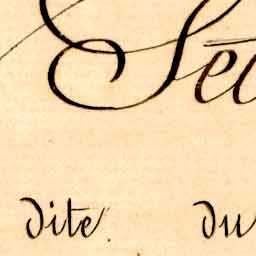 Sec
dite. du